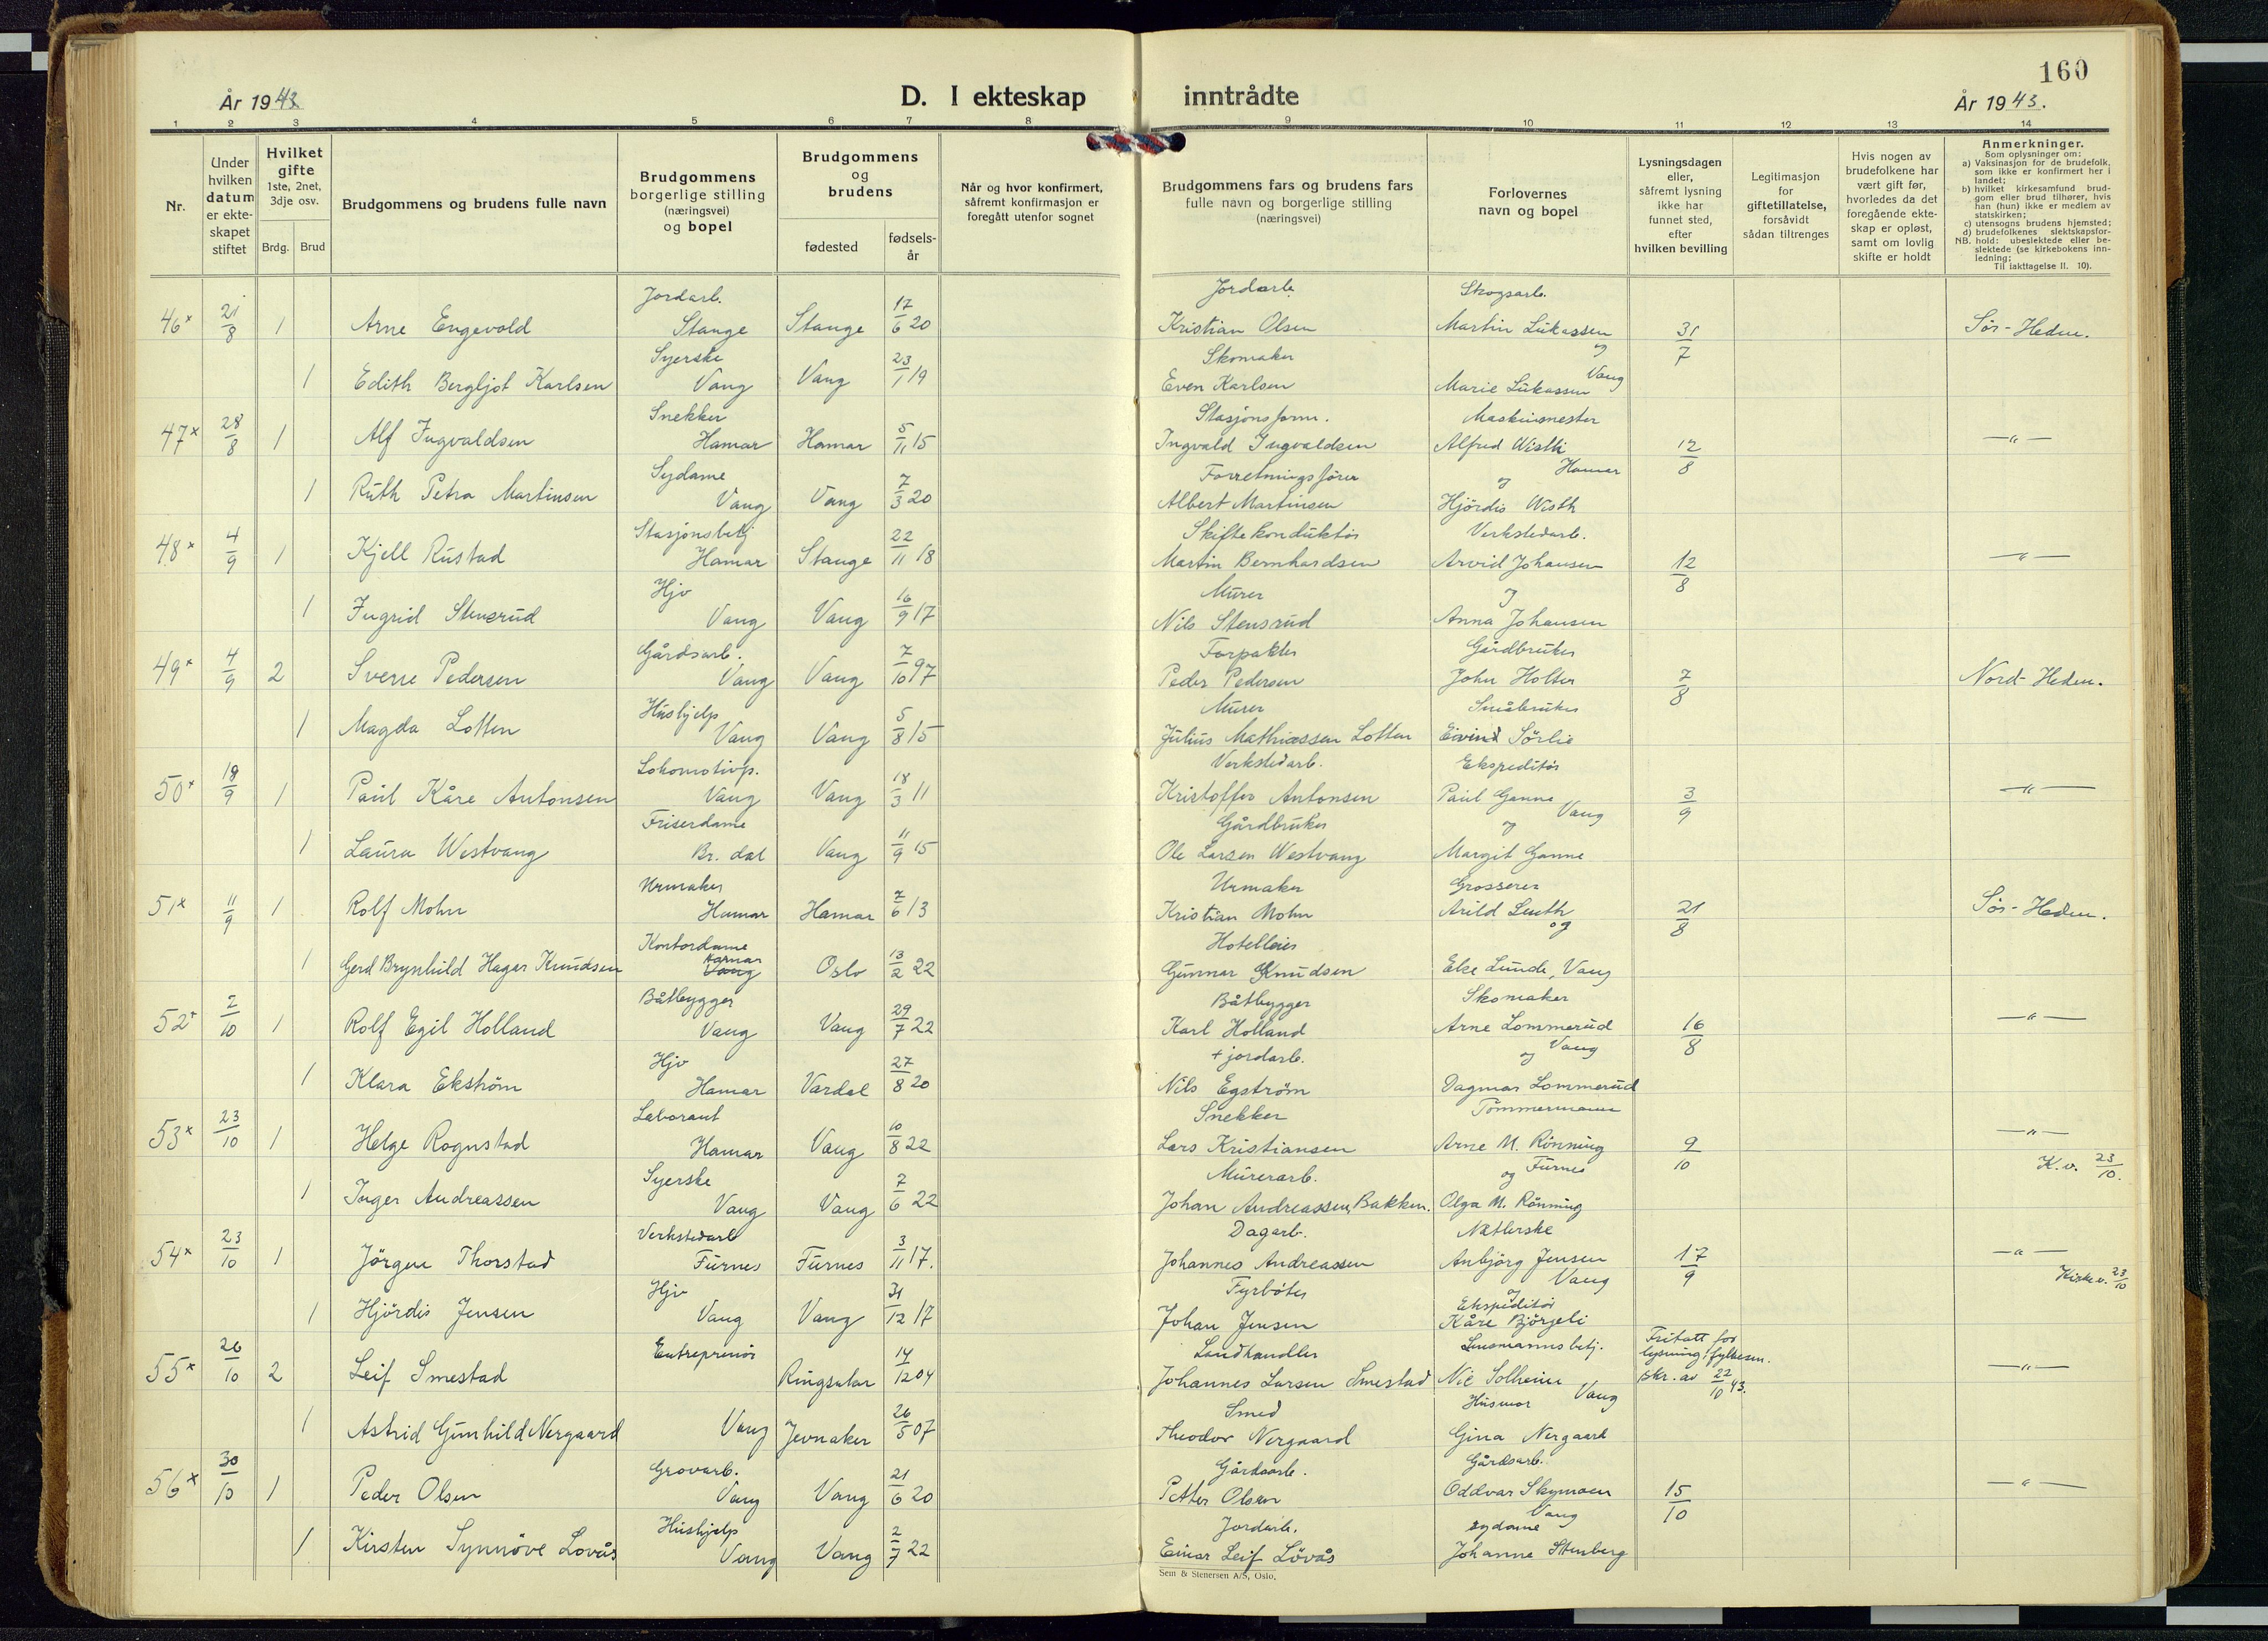 160
År 1943
D. I ekteskap inntrådte
År 1943.
1 2 3 4 5 6 7 8 9 10 11 12 13 14
Nr.
Under hvilken datum er ekteskapet stiftet
Hvilket gifte 1ste, 2net, 3dje osv.
Brdg. Brud
Brudgommens og brudens fulle navn
Brudgommens borgerlige stilling (næringsvei) og bopel
Brudgommens og brudens
fødested
fødselsår
Når og hvor konfirmert, såfremt konfirmasjon er foregått utenfor sognet
Brudgommens fars og brudens fars fulle navn og borgerlige stilling (næringsvei)
Forlovernes navn og bopel
Lysningsdagen eller, såfremt lysning ikke har funnet sted, efter hvilken bevilling
Legitimasjon for giftetillatelse, forsåvidt sådan tiltrenges
Hvis nogen av brudefolkene har vært gift før, hvorledes da det foregående ekteskap er opløst, samt om lovlig skifte er holdt
Anmerkninger.
Som oplysninger om:
a) Vaksinasjon for de brudefolk, som ikke er konfirmert her i landet;
b) hvilket kirkesamfund brudgom eller brud tilhører, hvis han (hun) ikke er medlem av statskirken;
c) utensogns brudens hjemsted;
d) brudefolkenes slektskapsforhold: ubeslektede eller beslektede (se kirkebokens innledning;
NB. Til iakttagelse II. 10).
Jordarb. Jordarb. Skogsarb.
46x 21/8 1 Arne Engevold Stange Stange 17/6 20 Kristian Olsen Martin Lukassen 31/7 Sör-Hedm.
Syerske Skomaker og Vang
1 Edith Bergljot Karlsen Vang Vang 23/1 19 Even Karlsen Marie Lukassen
Snekker Stasjonsform. Maskinmester
47x 28/8 1 Alf Ingvaldsen Hamar Hamar 5/11 15 Ingvald Ingvaldsen Alfred Wisth 12/8 —"—
Sydame Forretningsförer og Hamar
1 Ruth Petra Martinsen Vang Vang 7/3 20 Albert Martinsen Hjördis Wisth
Stasjonsbetj Skiftekonduktör Verkstedarb.
48x 4/9 1 Kjell Rustad Hamar Stange 22/11 18 Martin Bernhardsen Arvid Johansen 12/8 —"—
Hjv Murer og
1 Ingrid Stensrud Vang Vang 16/9 17 Nils Stensrud Anna Johansen
Gårdsarb. Forpakter Gårdbruker
49x 4/9 2 Sverre Pedersen Vang Vang 7/10 97 Peder Pedersen John Holter 7/8 Nord-Hedm.
Hushjelp Murer Småbruker
1 Magda Lotten Vang Vang 5/8 15 Julius Mathiassen Lotten Eivind Sörlie
Lokomotivp. Verkstedarb. Ekspeditör
50x 18/9 1 Paul Kåre Antonsen Vang Vang 18/3 11 Kristoffer Antonsen Paul Ganne 3/9 —"—
Friserdame Gårdbruker og Vang
1 Laura Westvang Br. dal Vang 11/9 15 Ole Larsen Westvang Margit Ganne
Urmaker Urmaker Grosserer
51x 11/9 1 Rolf Mohn Hamar Hamar 7/6 13 Kristian Mohn Arild 21/8 Sör-Hedm.
Kontordame Hotelleier og
1 Gerd Brynhild Hager Knudsen Hamar Vang Oslo 13/2 22 Gunnar Knudsen Else Lunde, Vang
Båtbygger Båtbygger Skomaker
52x 2/10 1 Rolf Egil Holland Vang Vang 29/7 22 Karl Holland Arne Lommerud 16/8 —"—
Hjv + jordarb. og Vang
1 Klara Ekström Hamar Vardal 27/8 20 Nils Egström Dagmar Lommerud
Laborant Snekker Tömmermann
53x 23/10 1 Helge Rognstad Hamar Vang 10/8 22 Lars Kristiansen Arne M. Rönning 9/10 —"— K.v. 23/10.
Syerske Murerarb. og Furnes
1 Inger Andreassen Vang Vang 7/6 22 Johan Andreassen, Bakken. Olga M. Rönning
Verkstedarb Dagarb. Natterske
54x 23/10 1 Jörgen Thorstad Furnes Furnes 3/11 17. Johannes Andreassen Anbjörg Jensen 17/9 —"— Kirkev. 23/10
Hjv Fyrböter og Vang Ekspeditör
1 Hjördis Jensen Vang Vang 31/12 17 Johan Jensen Kåre Björgeli
Entreprenör Landhandler Lensmannsbetj. Fritatt for lysning fylkesm.
55x 26/10 2 Leif Smestad Ringsaker 14/12 04 Johannes Larsen Smestad Nic Solheim skr. av 22/10 43. —"—
Smed Husmor Vang
1 Astrid Gunhild Nergaard Vang Jevnaker 26/5 07 Theodor Nergaard Gina Nergaard
Grovarb. Gårdsarb. Gårdsarb.
56x 30/10 1 Peder Olsen Vang Vang 21/6 20 Petter Olsen Oddvar Skymoen 15/10 —"—
Hushjelp Jordarb. Vang sydame
1 Kirsten Synnöve Lovås Vang Vang 2/7 22 Einar Leif Lövås Johanne Stenberg
Sem & Stenersen A/S, Oslo.